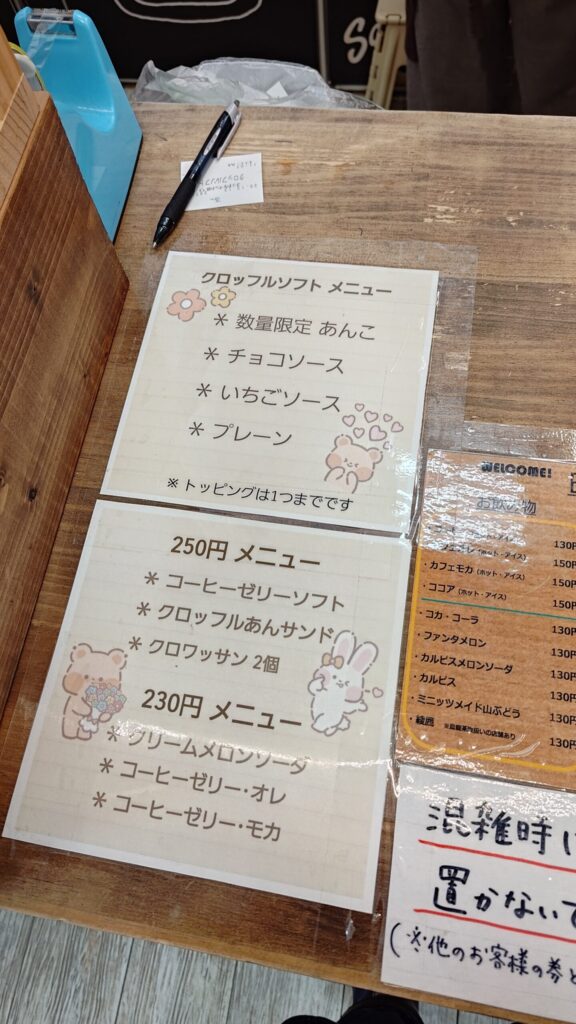 クロッフルソフト メニュー
＊ 数量限定 あんこ
＊ チョコソース
＊ いちごソース
＊ プレーン
※ トッピングは1つまでです
250円 メニュー
＊ コーヒーゼリーソフト
＊ クロッフルあんサンド
＊ クロワッサン 2個
230円 メニュー
＊ クリームメロンソーダ
＊ コーヒーゼリー・オレ
＊ コーヒーゼリー・モカ
WELCOME!
お飲み物
130円
150円
・カフェモカ (ホット・アイス) 150円
・ココア (ホット・アイス) 150円
・コカ・コーラ 130円
・ファンタメロン 130円
・カルピスメロンソーダ 130円
・カルピス 130円
・ミニッツメイド山ぶどう 130円
・綾鷹 130円
混雑時
置かないで
(※他のお客様の券と